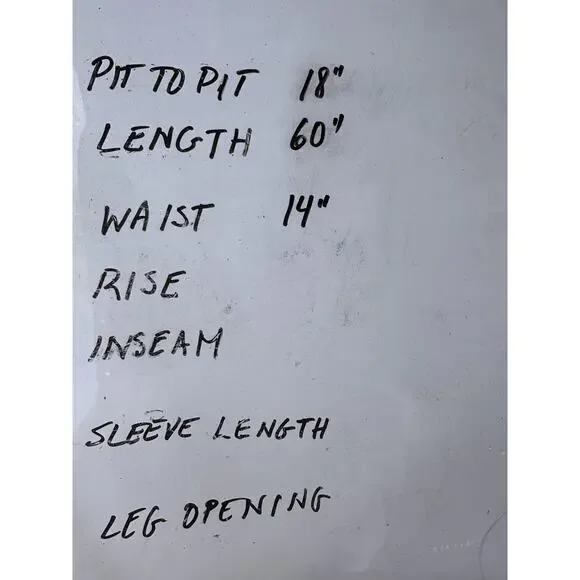 PIT TO PIT 18"
LENGTH 60"
WAIST 14"
RISE
INSEAM
SLEEVE LENGTH
LEG OPENING